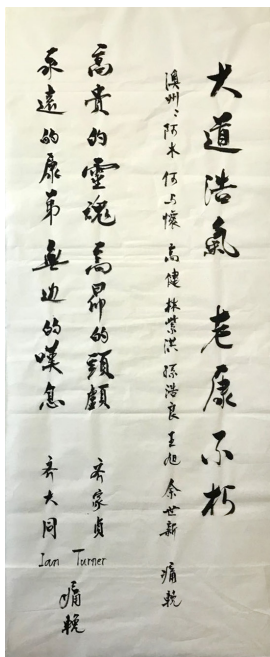 大道浩氣 老康不朽
澳州:阿木 何与懷 高健 林紫洪 孫浩良 王旭 余世新 痛輓
高貴的靈魂 高昂的頭顱
永遠的康弟 無边的嘆息
齐家贞
齐大同
Ian Turner
痛輓